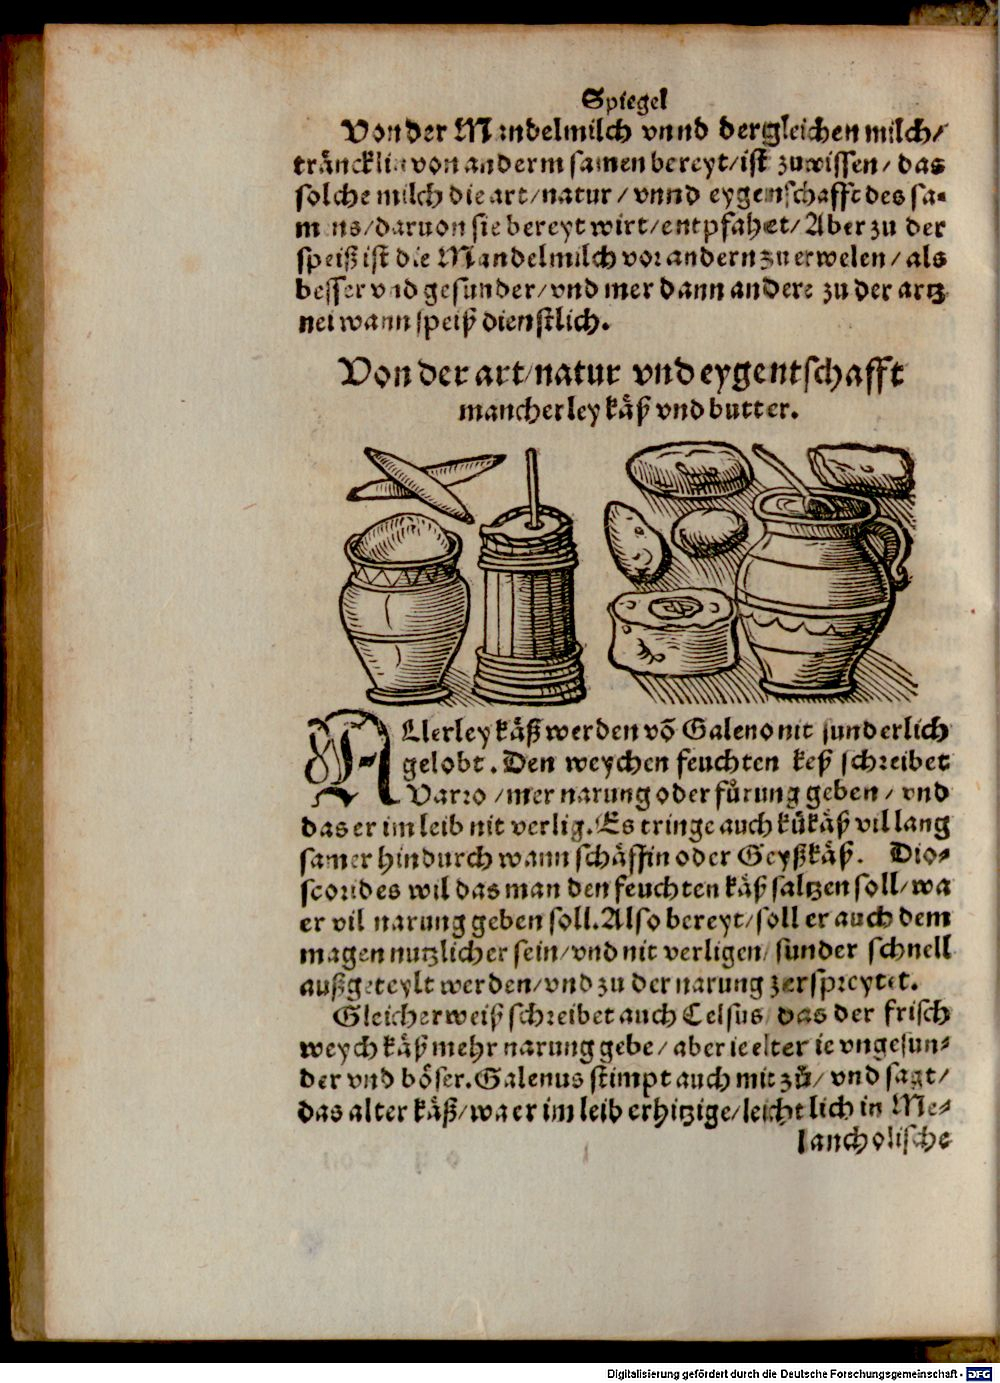 Spiegel
Von der Mandelmilch vnnd dergleichen milch/
träncklin von anderm samen bereyt/ist zuwissen/das
solche milch die art/natur/vnnd eygenschafft des sa-
mens/daruon sie bereyt wirt/entpfahet/Aber zu der
speiß ist die Mandelmilch vor andern zu erwelen/als
besser vnd gesunder/vnd mer dann andere zu der artz
nei wann speiß dienstlich.
Von der art/natur vnd eygentschafft
mancherley käß vnd butter.
ALlerley käß werden võ Galeno nit sunderlich
gelobt. Den weychen feuchten keß schreibet
Varro/mer narung oder fůrung geben/vnd
das er im leib nit verlig. Es tringe auch kůkäß vil lang
samer hindurch wann schäffin oder Geyßkäß. Dio-
scorides wil das man den feuchten käß saltzen soll/wa
er vil narung geben soll. Also bereyt/soll er auch dem
magen nutzlicher sein/vnd nit verligen/sunder schnell
außgeteylt werden/vnd zu der narung zerspreytet.
Gleicherweiß schreibet auch Celsus/das der frisch
weych käß mehr narung gebe/aber ie elter ie vngesun-
der vnd böser. Galenus stimpt auch mit zů/vnd sagt/
das alter käß/wa er im leib erhitzige/leichtlich in Me-
lancholische
Digitalisierung gefördert durch die Deutsche Forschungsgemeinschaft - DFG